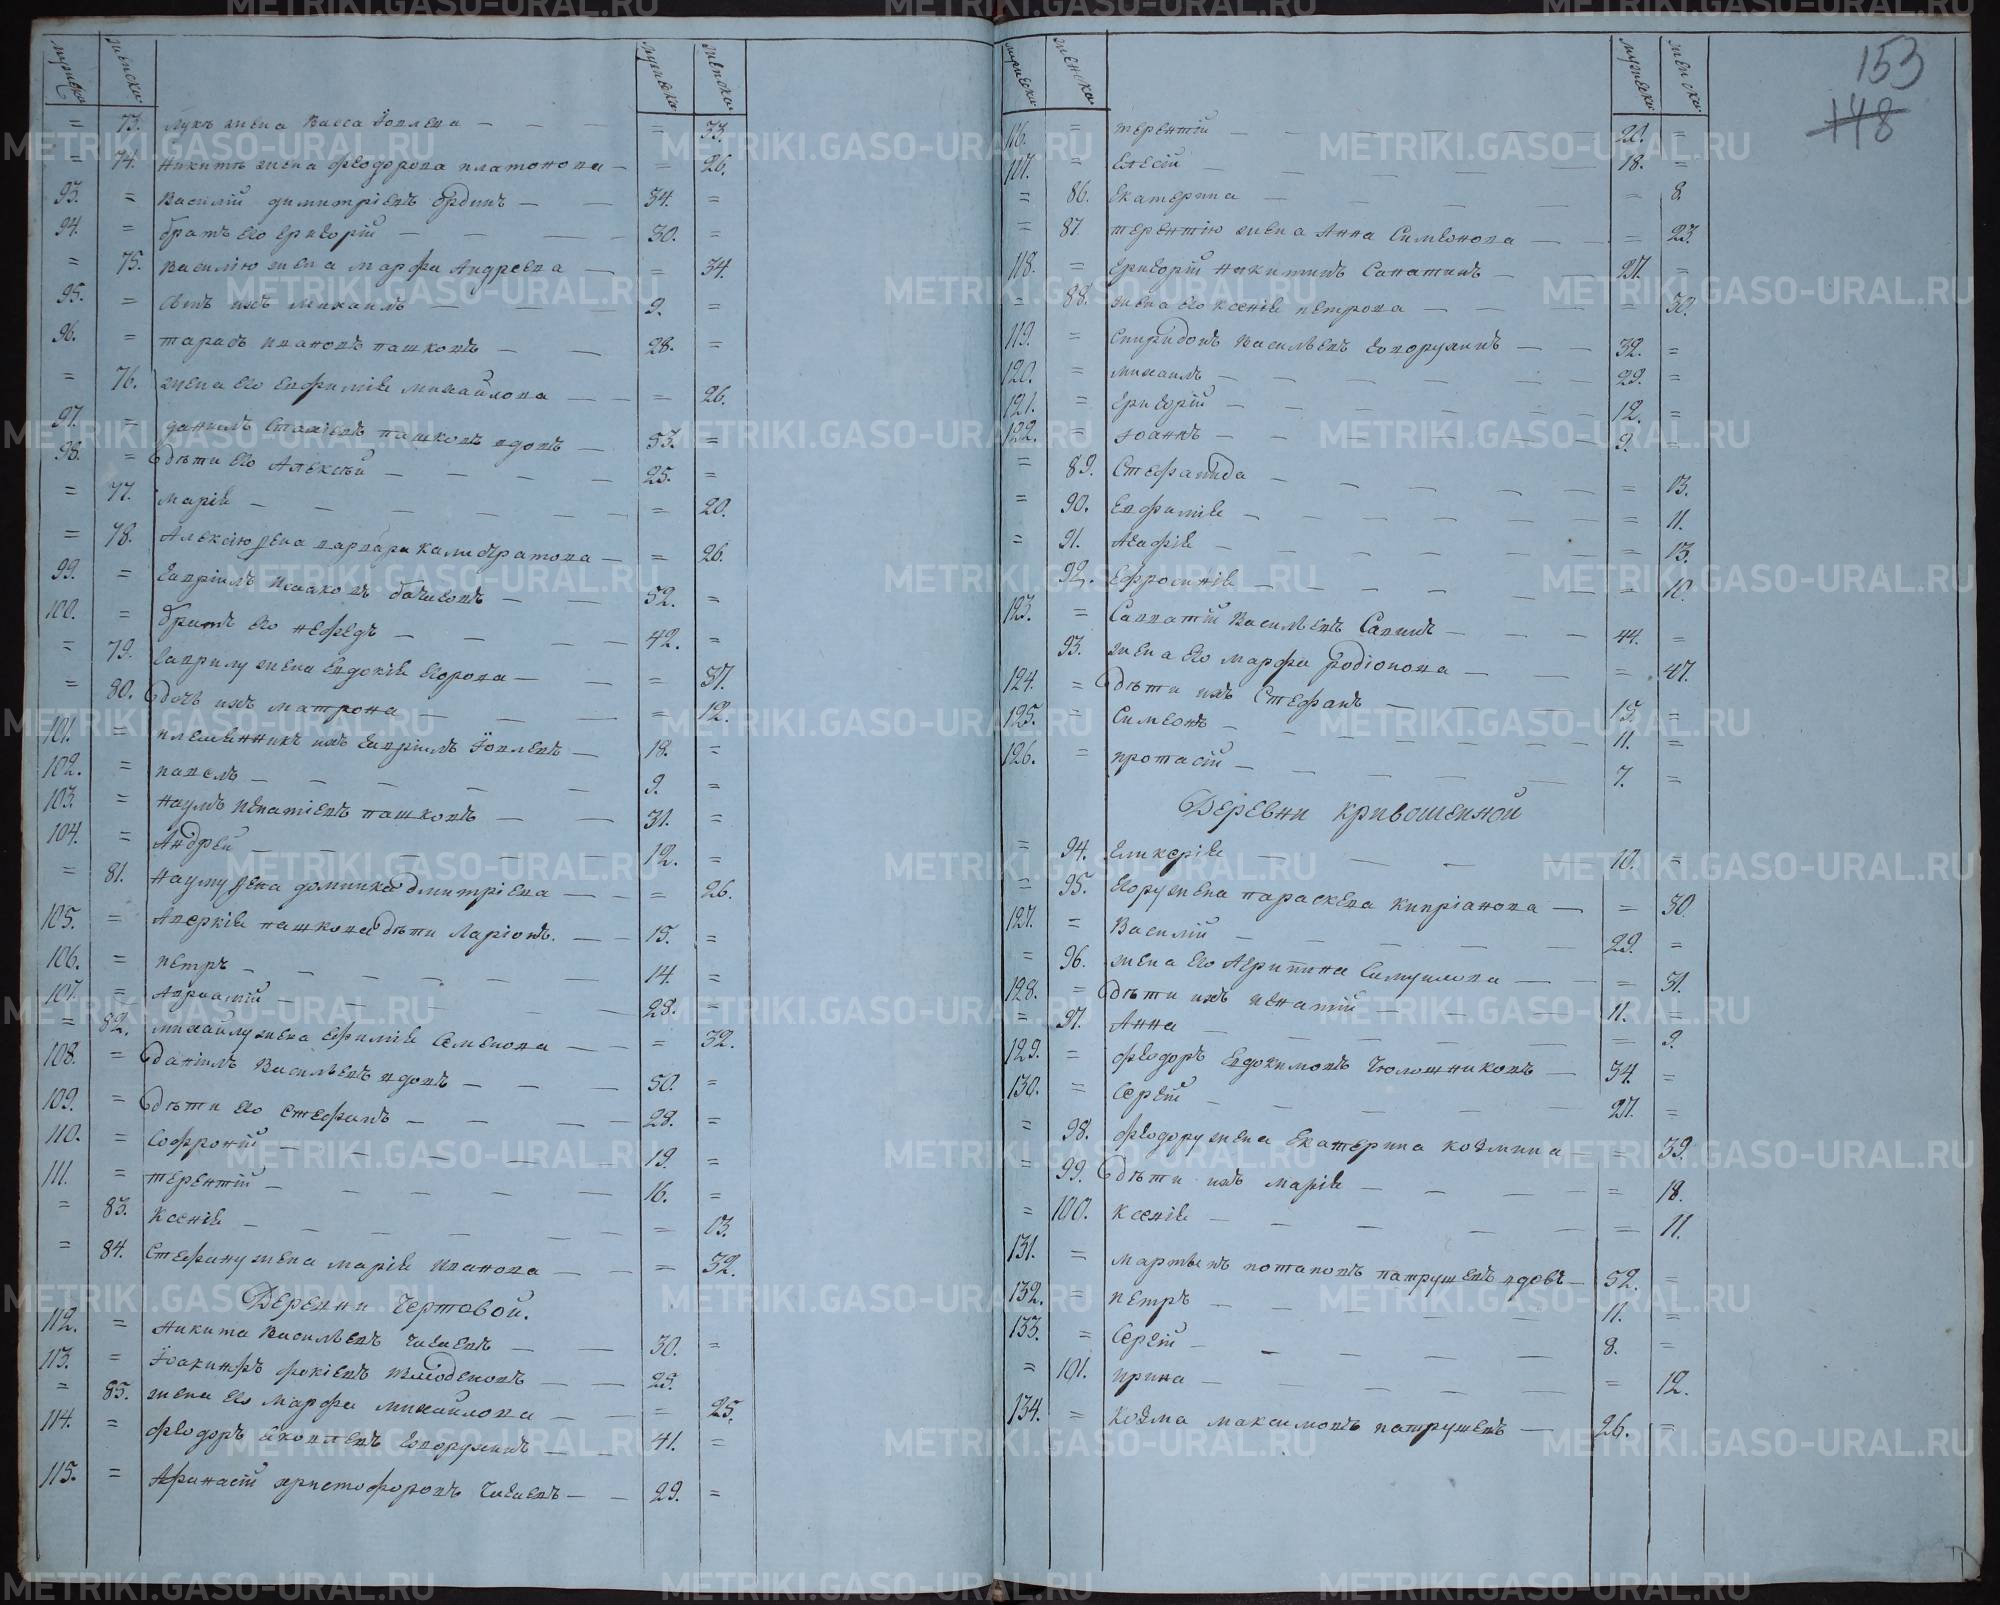 мужеска женска мужеска женска
= 73. Лукѣ жена Васса Іовлева — — — = 33.
= 74. Никитѣ жена Феодорова Платонова — = 26.
93. = Василій Димитріевъ Ердинъ — — 34. =
94. = братъ его Григорій — — — — 30. =
= 75. Василію жена Марфа Андреева — = 34.
95. = сынъ ихъ Михаилъ — — — 9. =
96. = Тарасъ Ивановъ Пашковъ — — 28. =
= 76. жена его Евфимія Михайлова — — = 26.
97. = Даниилъ Стахіевъ Пашковъ вдовъ — 53. =
98. = дѣти его Алексѣй — — — — 25. =
= 77. Марія — — — — — — = 20.
= 78. Алексѣю жена Варвара Калистратова — = 26.
99. = Гавріилъ Исааковъ — — 52. =
100. = братъ его Нефедъ — — — — 42. =
= 79. Гаврилу жена Евдокія Егорова — — = 37.
= 80. дочь ихъ Матрона — — — = 12.
101. = племянникъ ихъ Гавріилъ Іовлевъ — 18. =
102. = Павелъ — — — — — — 9. =
103. = Наумъ Игнатіевъ Пашковъ — — 31. =
104. = Андрей — — — — — 12. =
= 81. Науму жена Домника Дмитріева — — = 26.
105. = Аверкія Пашкова дѣти Ларіонъ. — — 15. =
106. = Петръ — — — — — — 14. =
107. = Авраамій — — — — — 28. =
= 82. Михайлу жена Ефимія Семенова — — = 32.
108. = Даніилъ Васильевъ вдовъ — — — 50. =
109. = дѣти его Стефанъ — — — — 28. =
110. = Софроній — — — — — 19. =
111. = Терентій — — — — — — 16. =
= 83. Ксенія — — — — — = 13.
= 84. Стефану жена Марія Иванова — — = 32.
Деревни Чертовой.
112. = Никита Васильевъ Чигаевъ — — 30. =
113. = Іоакинфъ Фокіевъ — — 25.
= 85. жена его Марфа Михайлова — — = 25.
114. = Феодоръ Яковлевъ Говорухинъ — — 41. =
115. = Афанасій Христофоровъ Чигаевъ — — 29. =
153
148
мужеска женска мужеска женска
116. = Терентій — — — — — 20. =
117. = Елесій — — — — — — 18. =
= 86. Екатерина — — — — — = 8.
= 87. Терентію жена Анна Симеонова — — = 23.
118. = Григорій Никитинъ Санатинъ — — 27. =
= 88. жена его Ксенія Петрова — — — = 30.
119. = Спиридонъ Васильевъ Говорухинъ — — 32. =
120. = Михаилъ — — — — — — 29. =
121. = Григорій — — — — — — 12. =
122. = Іоаннъ — — — — — — 9. =
= 89. Стефанида — — — — — = 13.
= 90. Евфимія — — — — — — = 11.
= 91. Агафія — — — — — — = 13.
92. Ефросинія — — — — — = 10.
123. = Савватій Васильевъ Савинъ — — — 44. =
93. жена его Марфа Родіонова — — — = 47.
124. = дѣти ихъ Стефанъ — — — — 15. =
125. = Симеонъ — — — — — — 11. =
126. = Протасій — — — — — — 7. =
Деревни Кривошеиной
= 94. Гликерія — — — 10. =
= 95. Егору жена Параскева Кипріанова — = 30.
127. = Василій — — — — — 29. =
= 96. жена его Агрипина Самуилова — — = 31.
128. = дѣти ихъ Игнатій — — — — 11. =
= 97. Анна — — — — — — = 9.
129. = Феодоръ Евдокимовъ — 34. =
130. = Сергій — — — — — 27. =
= 98. Феодору жена Екатерина Козмина — = 39.
= 99. дѣти ихъ Марія — — — — = 18.
= 100. Ксенія — — — — — — = 11.
131. = Мартынъ Потаповъ Патрушевъ вдовъ — 52. =
132. = Петръ — — — — — — 11. =
133. = Сергій — — — — — 8. =
= 101. Ирина — — — — — — = 12.
134. = Козма Максимовъ Патрушевъ — 26. =
METRIKI.GASO-URAL.RU